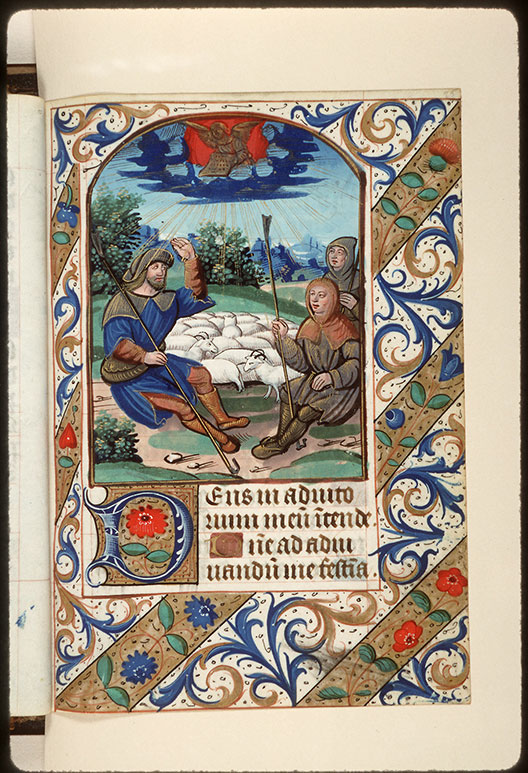 Deus in adiuto
rium meū ītende.
Dñe ad adiu
uandū me festīa